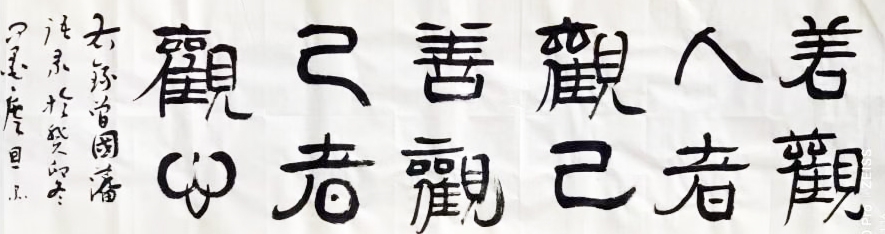 善觀
人者
觀己
善觀
己者
觀心
右錄曾國藩
語录於癸卯冬
ZEISS